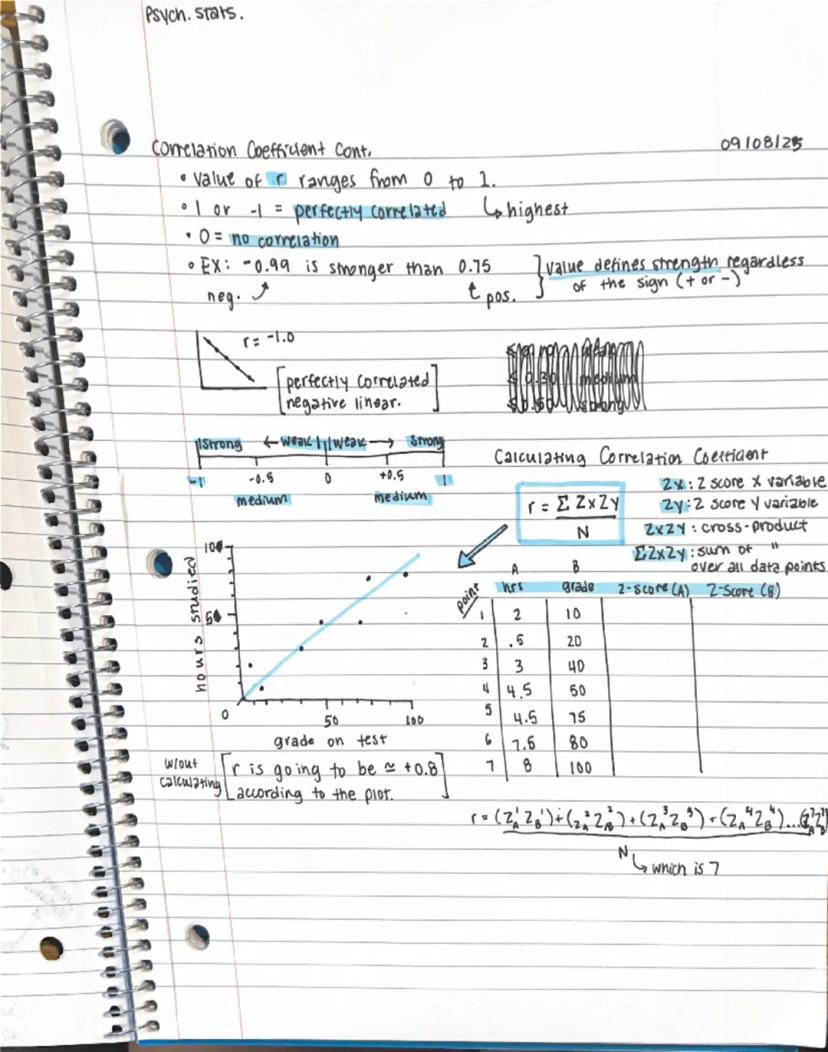 Psych. stats.
Correlation Coefficient Cont. 09/08/25
• Value of r ranges from 0 to 1.
• 1 or -1 = perfectly correlated ↳ highest
• 0 = no correlation
• EX: -0.99 is stronger than 0.75 } value defines strength regardless
of the sign (+ or -)
neg. pos.
r = -1.0
[perfectly correlated
negative linear.]
Strong ← weak | weak → Strong
-1 -0.5 0 +0.5 1
medium medium
Calculating Correlation Coefficient
r = Σ ZxZy
N
Zx: Z score X variable
Zy: Z score Y variable
ZxZy: cross-product
ΣZxZy: sum of "
over all data points
100
50
0 50 100
hours studied
grade on test
A B
point hrs grade Z-score (A) Z-score (B)
1 2 10
2 .5 20
3 3 40
4 4.5 50
5 4.5 75
6 7.5 80
7 8 100
w/out
calculating
[r is going to be ≃ +0.8
according to the plot.]
r = (Z_A^1 Z_B^1) + (Z_A^2 Z_B^2) + (Z_A^3 Z_B^3) + (Z_A^4 Z_B^4) ... (Z_A^7 Z_B^7)
N
↳ which is 7